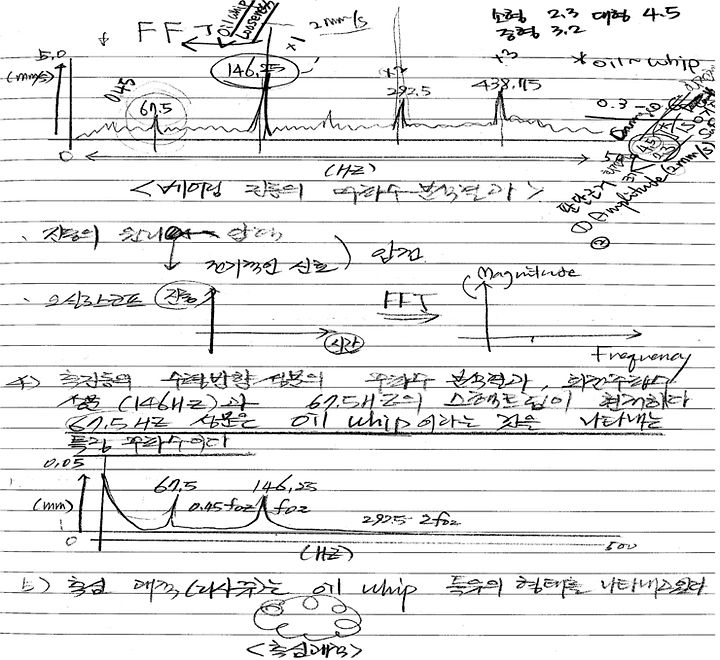 소형 2.3 대형 4.5
중형 3.2
FFT
Oil whip
Looseness
2mm/s
5.0
(mm/s)
0.45
67.5
146.25
x1
x2
292.5
x3
438.75
* oil~whip
0.3~
0
(HZ)
Amplitude(2mm/s)
①
②
<베어링 진동의 주파수 분석결과>
진동의 원리
전기적인 신호 ) 압전
오실라코프 진동
시간
FFT
Magnitude
Frequency
a) 축진동의 수평방향 성분의 주파수 분석결과, 회전주파수
성분 (146HZ)과 67.5HZ의 스펙트럼이 현저하다
67.5HZ 성분은 oil whip이라는 것을 나타내는
특징 주파수이다
0.05
(mm)
0
67.5
0.45foz
146.25
foz
292.5 2foz
500
(HZ)
b) 축심 궤적(리사쥬)는 oil whip 특유의 형태를 나타내고있다
<축심궤적>